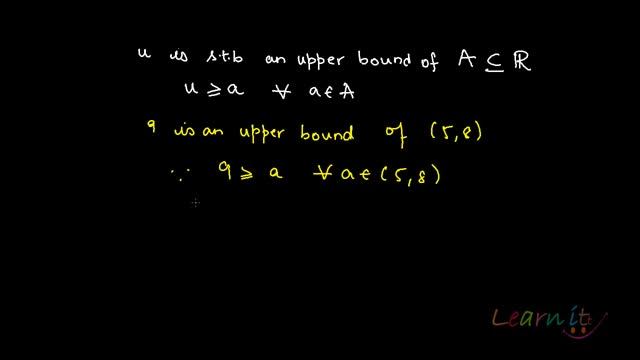 u is s.t.b an upper bound of A ⊆ ℝ
u ⩾ a ∀ a ∈ A
9 is an upper bound of (5,8)
∵ 9 ⩾ a ∀ a ∈ (5,8)
Learnit